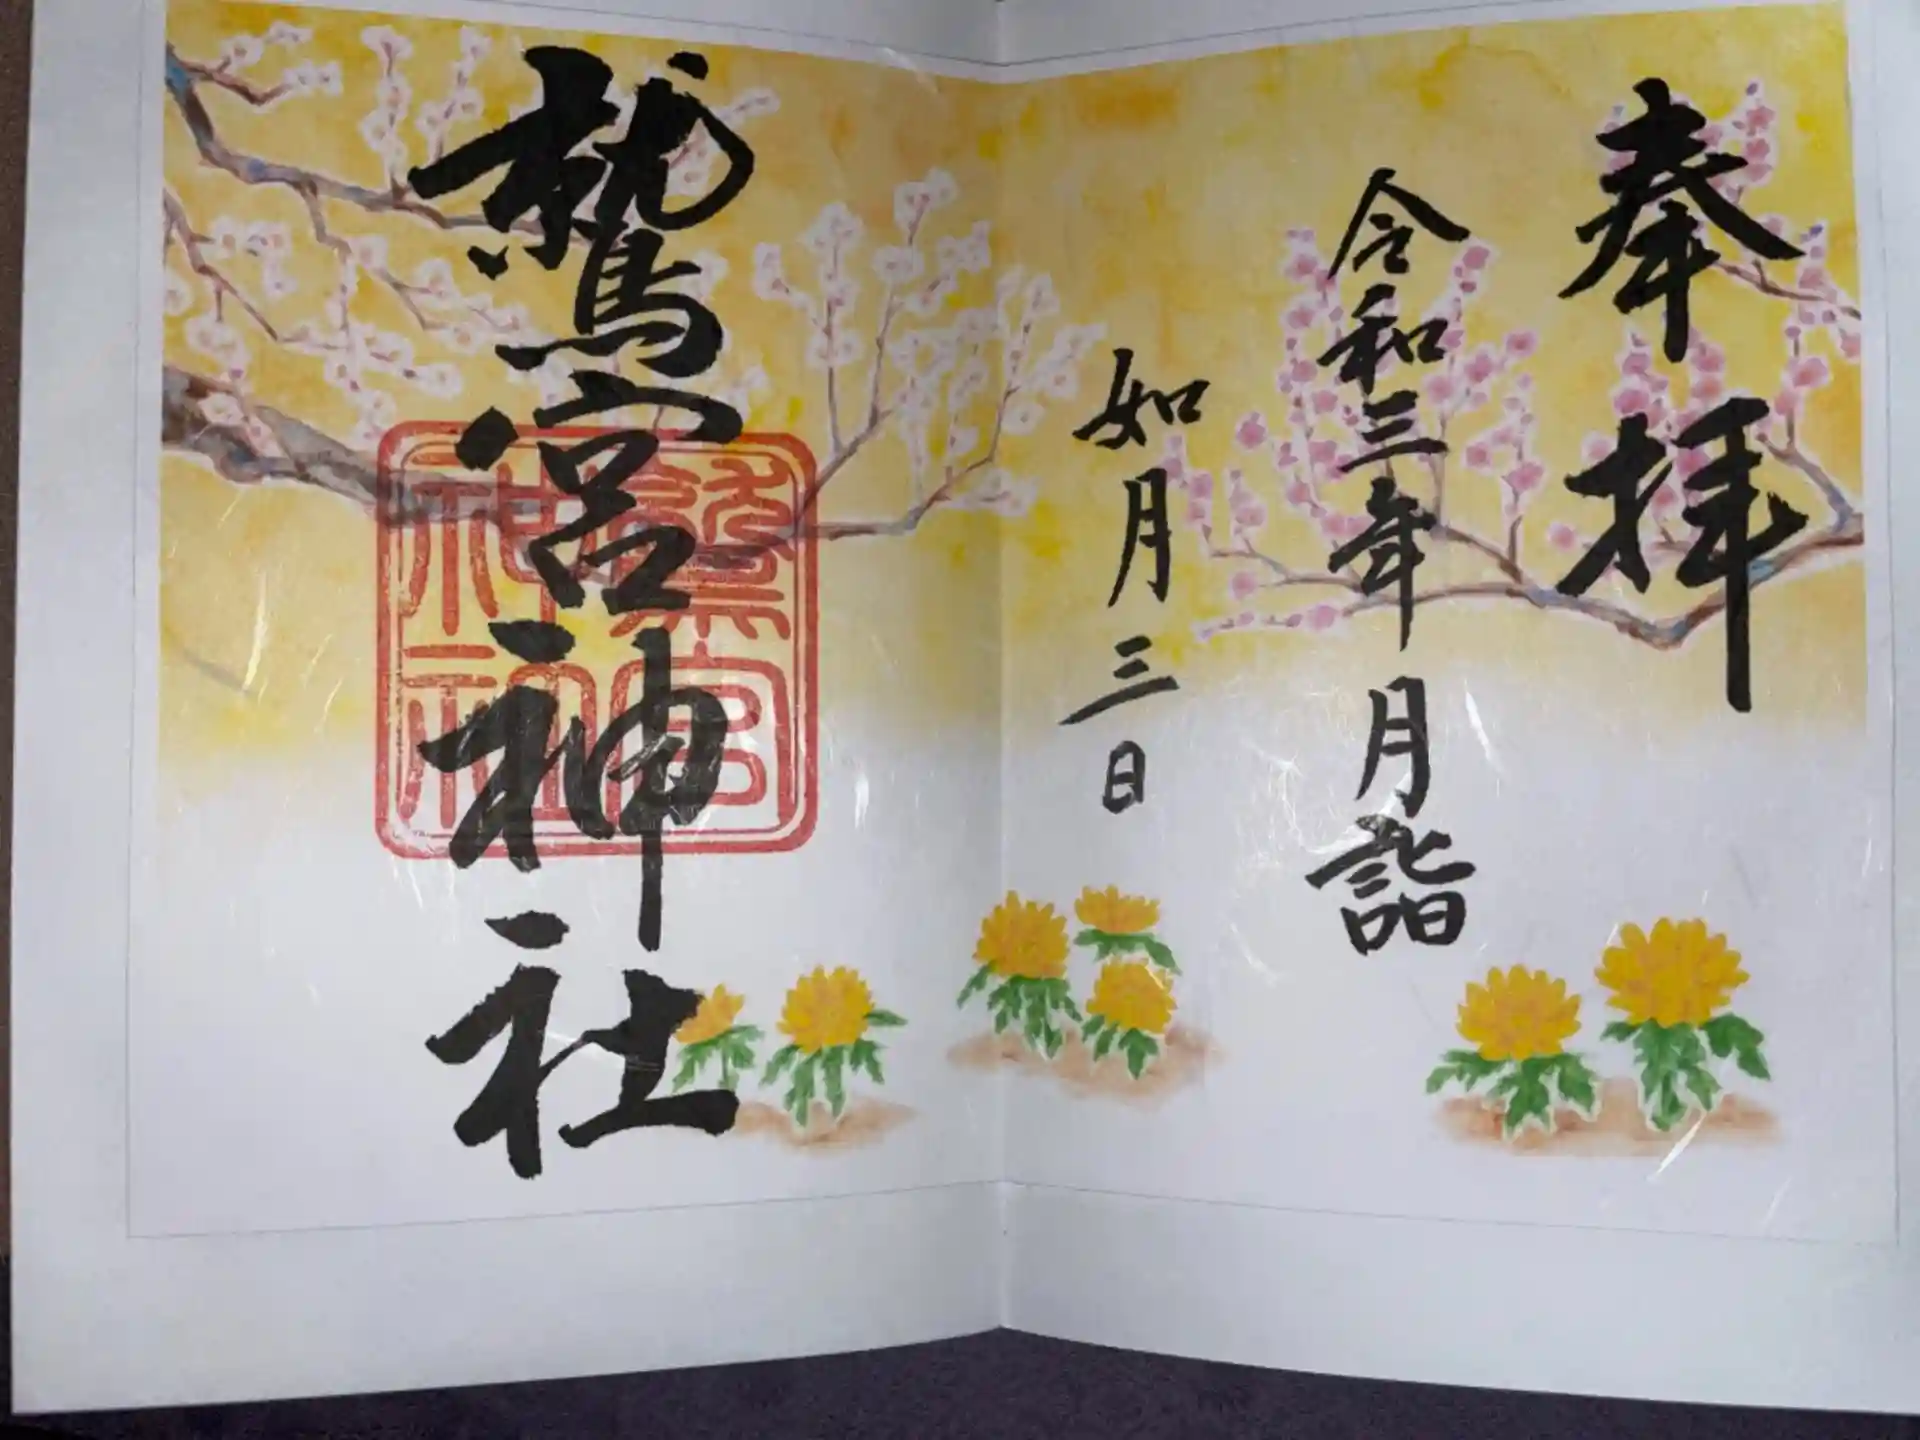 奉拝
令和三年月詣
如月三日
鷲宮神社
鷲宮神社